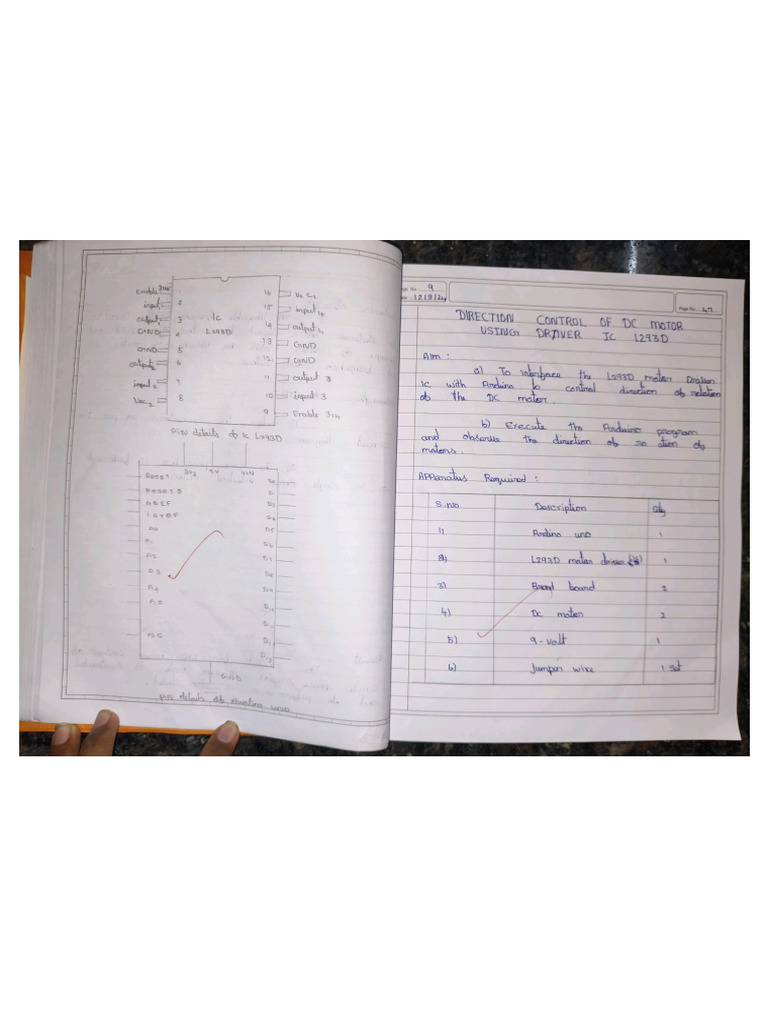 Enable
1
16
Vcc1
input
2
15
input 4
output
3
IC
14
output 4
GND
4
L293D
13
GND
GND
5
12
GND
output2
6
11
output 3
input 2
7
10
input 3
Vcc2
8
9
Enable 3,4
PIN details of IC L293D
5V
RESET
AREF
A0
A1
A2
A3
A4
A5
GND
pin details of Arduino uno
9
12/9/24
Page No : 47
DIRECTION CONTROL OF DC MOTOR
USING DRIVER IC L293D
Aim :
a) To interface the L293D motor Driver
IC with Arduino to control direction of rotation
of the DC motor
b) Execute the Arduino program
and observe the direction of ro ation of
motors.
Apparatus Required :
S.no Description Qty
1) Ardino uno 1
2) L293D motor driver 1
3) Bread board 2
4) Dc motor 2
5) 9-volt 1
6) Jumper wire 1 set